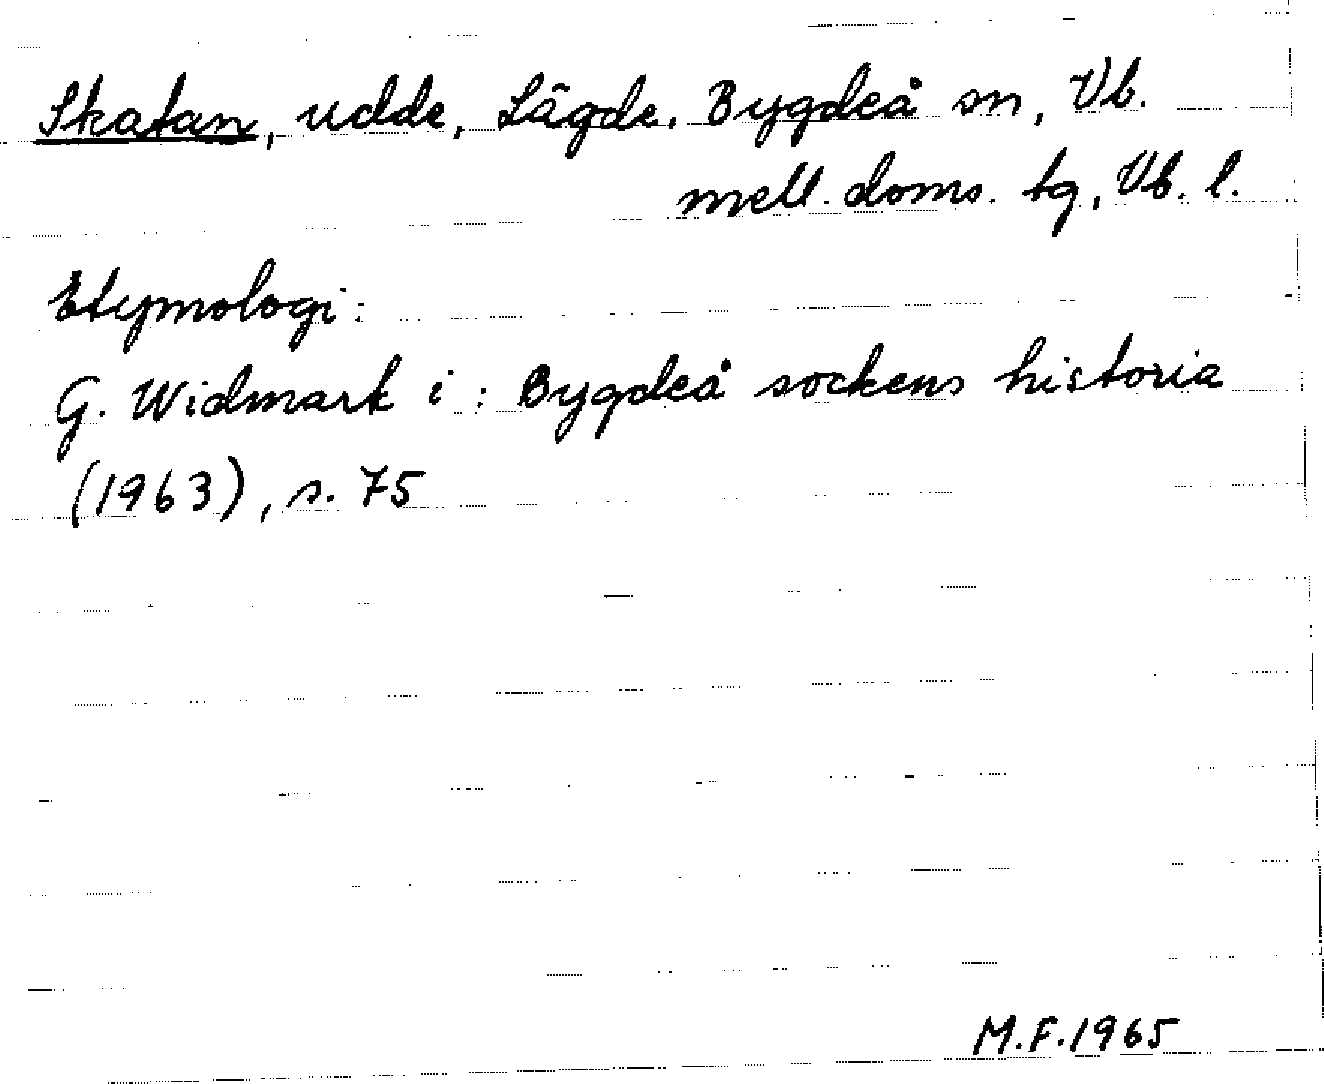 Skatan, udde, Lågde. Bygdeå sn, Vb.
mell. doms. tg, Vb. l.
Etymologi:
G. Widmark i: Bygdeå sockens historia
(1963), s. 75
M.F. 1965